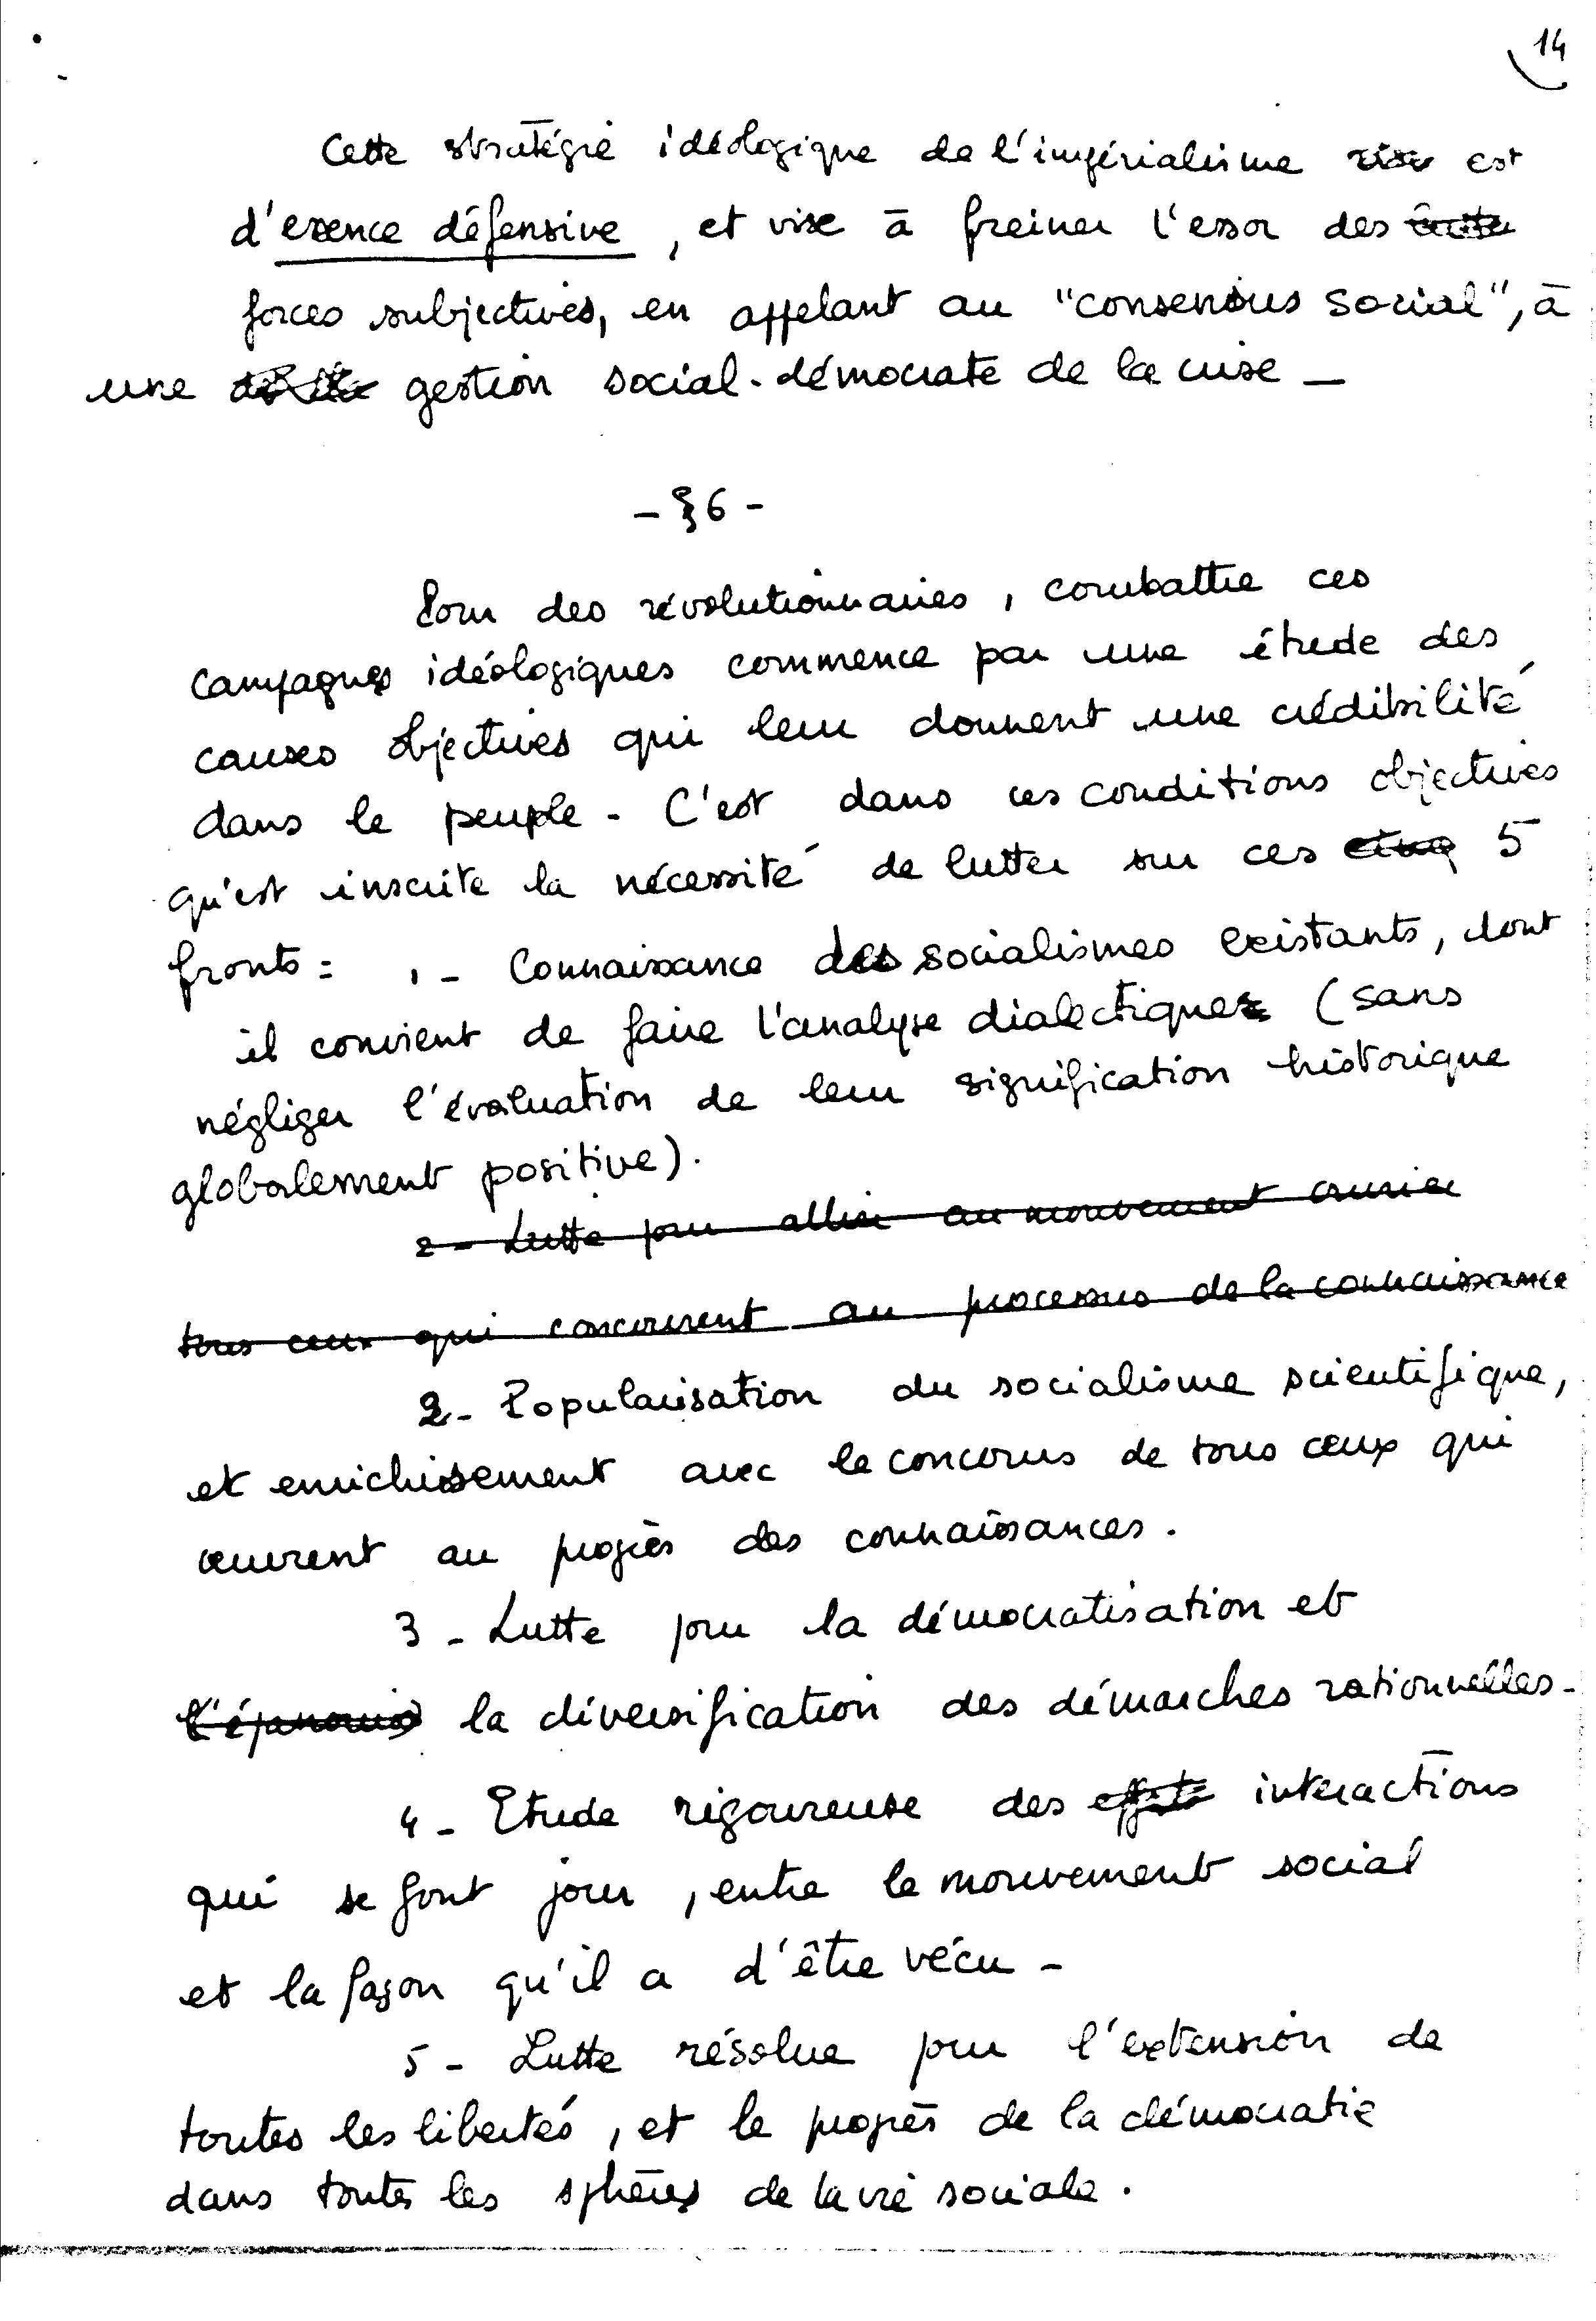 14
Cette stratégie idéologique de l'impérialisme est
d'essence défensive, et vise à freiner l'essor des
forces subjectives, en appelant au "consensus social", à
une gestion social-démocrate de la crise -
- § 6 -
Pour des révolutionnaires, combattre ces
campagnes idéologiques commence par une étude des
causes objectives qui leur donnent une crédibilité
dans le peuple - C'est dans ces conditions objectives
qu'est inscrite la nécessité de lutter sur ces cinq 5
fronts : 1 - Connaissance des socialismes existants, dont
il convient de faire l'analyse dialectique (sans
négliger l'évaluation de leur signification historique
globalement positive).
2 - Lutte pour allier au mouvement ouvrier
tous ceux qui concourent au processus de la connaissance
2 - Popularisation du socialisme scientifique,
et enrichissement avec le concours de tous ceux qui
œuvrent au progrès des connaissances.
3 - Lutte pour la démocratisation et
l'épanouis la diversification des démarches rationnelles -
4 - Etude rigoureuse des effets interactions
qui se font jour, entre le mouvement social
et la façon qu'il a d'être vécu -
5 - Lutte résolue pour l'extension de
toutes les libertés, et le progrès de la démocratie
dans toutes les sphères de la vie sociale.